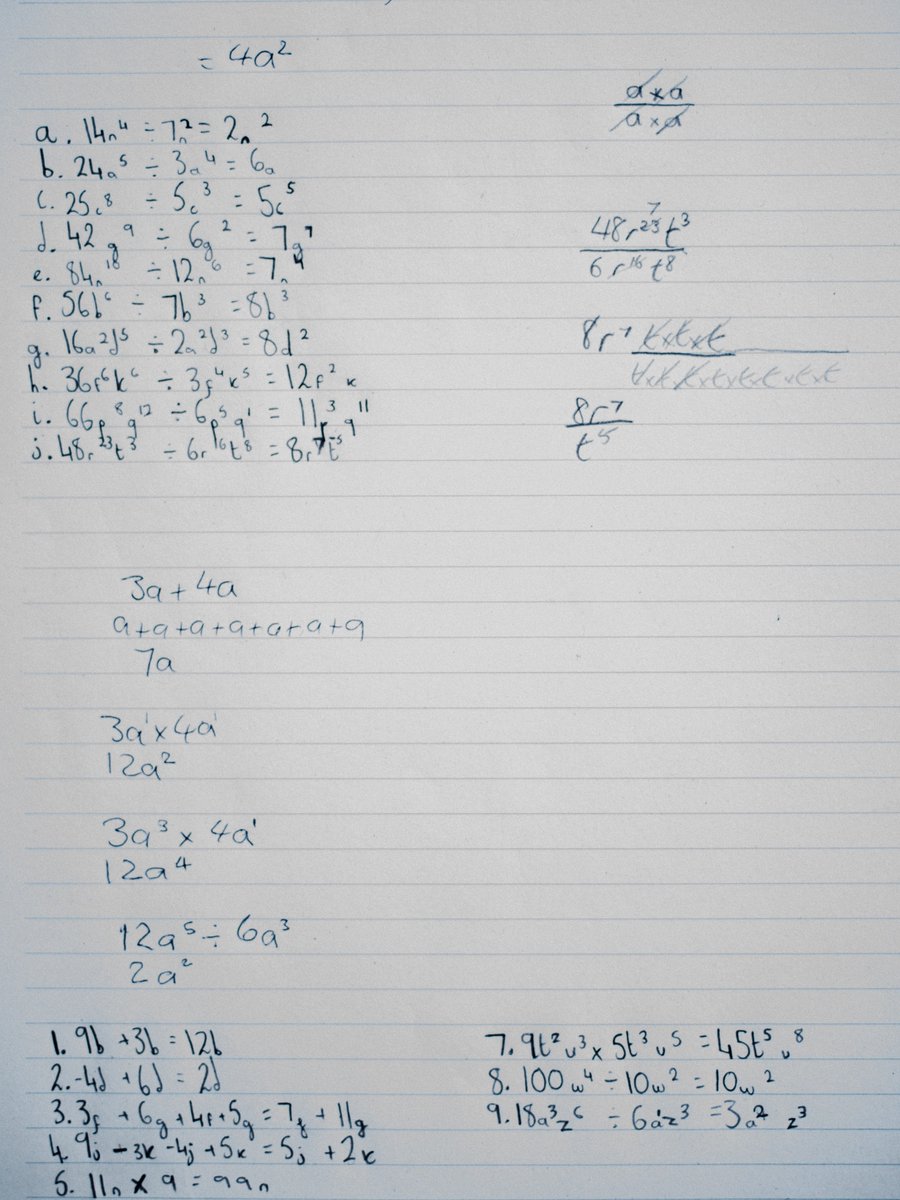 = 4a²
a. 14n⁴ ÷ 7n² = 2n²
b. 24a⁵ ÷ 3a⁴ = 6a
c. 25c⁸ ÷ 5c³ = 5c⁵
d. 42g⁹ ÷ 6g² = 7g⁷
e. 84n¹⁰ ÷ 12n⁶ = 7n⁴
f. 56b⁶ ÷ 7b³ = 8b³
g. 16a²d⁵ ÷ 2a²d³ = 8d²
h. 36f⁶k⁶ ÷ 3f⁴k⁵ = 12f²k
i. 66p⁸q¹² ÷ 6p⁵q¹ = 11p³q¹¹
j. 48r²³t³ ÷ 6r¹⁶t⁸ = 8r⁷t⁻⁵
a × a
a × a
7
48r²³t³
6r¹⁶t⁸
8r⁷ t×t×t
t×t×t×t×t×t×t×t
8r⁷
t⁵
3a + 4a
a+a+a+a+a+a+a
7a
3a¹ × 4a¹
12a²
3a³ × 4a¹
12a⁴
12a⁵ ÷ 6a³
2a²
1. 9b + 3b = 12b
2. -4d + 6d = 2d
3. 3f + 6g + 4f + 5g = 7f + 11g
4. 9j - 3k - 4j + 5k = 5j + 2k
5. 11n × 9 = 99n
7. 9t²u³ × 5t³u⁵ = 45t⁵u⁸
8. 100w⁴ ÷ 10w² = 10w²
9. 18a³z⁶ ÷ 6a¹z³ = 3a²z³